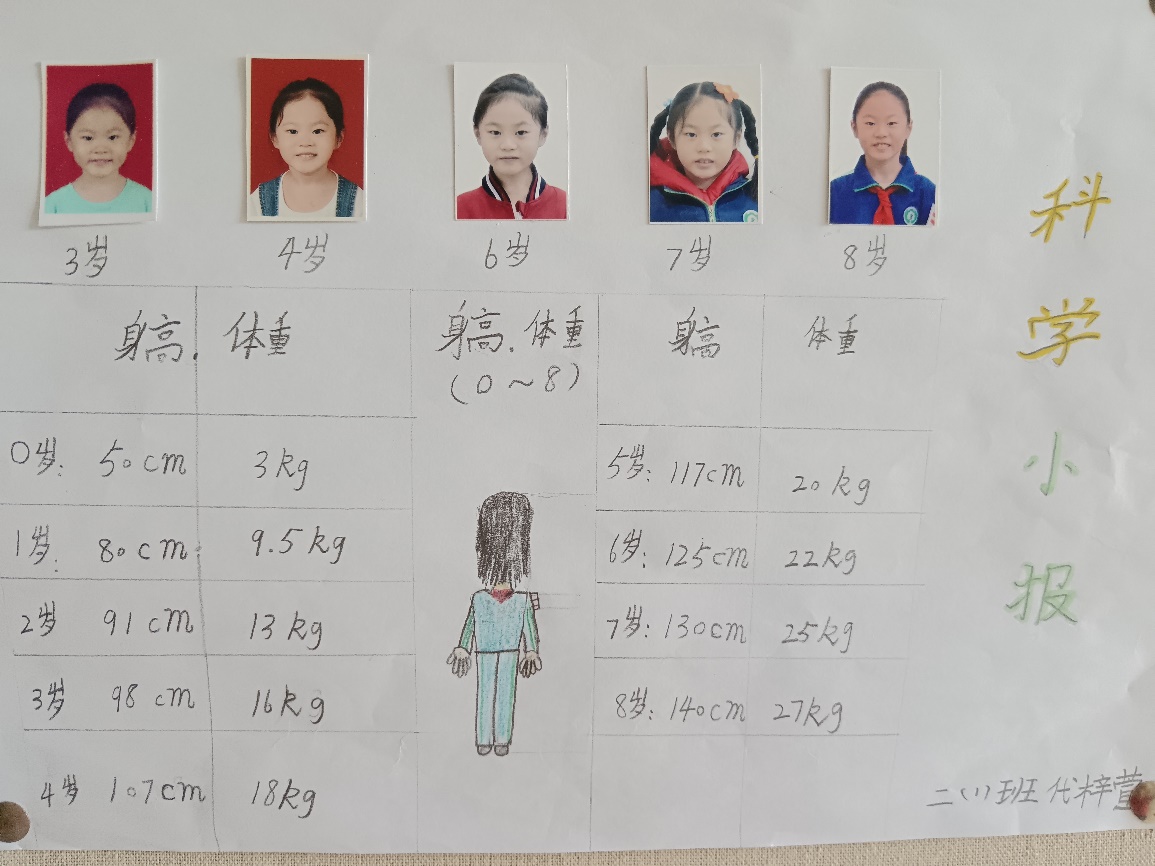 3岁 4岁 6岁 7岁 8岁
科学小报
身高. 体重
0岁: 50cm 3kg
1岁: 80cm 9.5kg
2岁 91cm 13kg
3岁 98cm 16kg
4岁 107cm 18kg
身高.体重
(0~8)
身高 体重
5岁: 117cm 20kg
6岁: 125cm 22kg
7岁: 130cm 25kg
8岁: 140cm 27kg
二(1)班 代梓萱